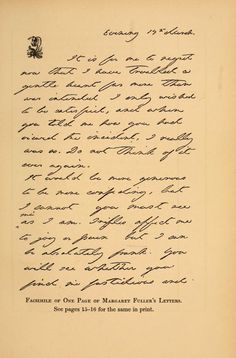 Evening 19th March.
It is for me to regret
now that I have troubled a
gentle heart far more than
was intended. I only wished
to be satisfied, and when
you told me how you had
viewed the incident, I really
was so. Do not think of it
ever again.
It would be more generous
to be more confiding, but
I cannot you must see
me
as I am. Trifles affect me
to joy or pain but I can
be absolutely frank. You
will see whether you
find me fastidious and
FACSIMILE OF ONE PAGE OF MARGARET FULLER'S LETTERS.
See pages 15-16 for the same in print.